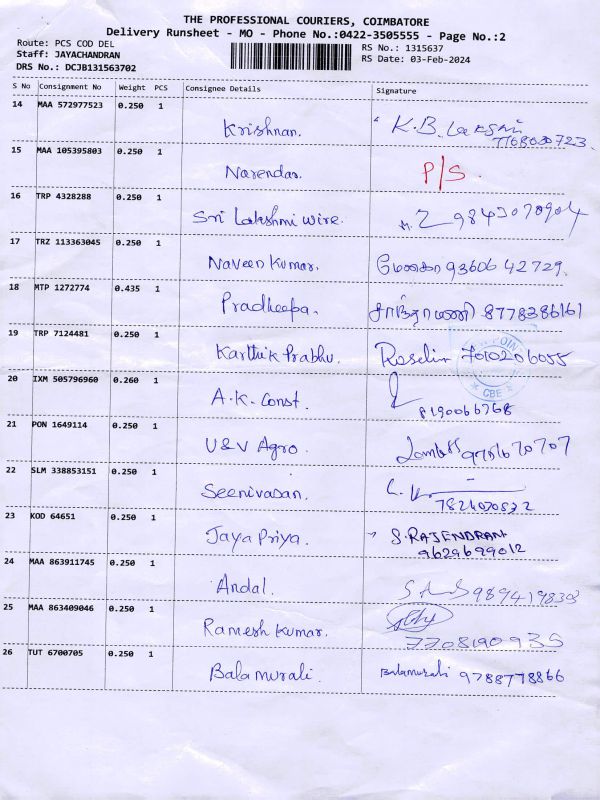 THE PROFESSIONAL COURIERS, COIMBATORE
Delivery Runsheet - MO - Phone No.:0422-3505555 - Page No.:2
Route: PCS COD DEL
Staff: JAYACHANDRAN
DRS No.: DCJB131563702
RS No.: 1315637
RS Date: 03-Feb-2024
S No Consignment No Weight PCS Consignee Details Signature
14 MAA 572977523 0.250 1 Krishnan. K.B. Lakshmi
15 MAA 105395803 0.250 1 Narendar. P/S.
16 TRP 4328288 0.250 1 Sri Lakshmi Wire.
17 TRZ 113363045 0.250 1 Naveen Kumar. மேனகா 93606 42729.
18 MTP 1272774 0.435 1 Pradheepa. சாந்தாமணி 8778386161
19 TRP 7124481 0.250 1 Karthik Prabhu. Roselin 7010206055
CBE
20 IXM 505796960 0.260 1 A.K. Const. 8190066768
21 PON 1649114 0.250 1 U&V Agro. 9751670707
22 SLM 338853151 0.250 1 Seenivasan.
23 KOD 64651 0.250 1 Jaya Priya. S.RAJENDRAN
9629699012
24 MAA 863911745 0.250 1 Andal.
25 MAA 863409046 0.250 1 Ramesh Kumar.
7708190935
26 TUT 6700705 0.250 1 Balamurali. Balamurali 9788778866